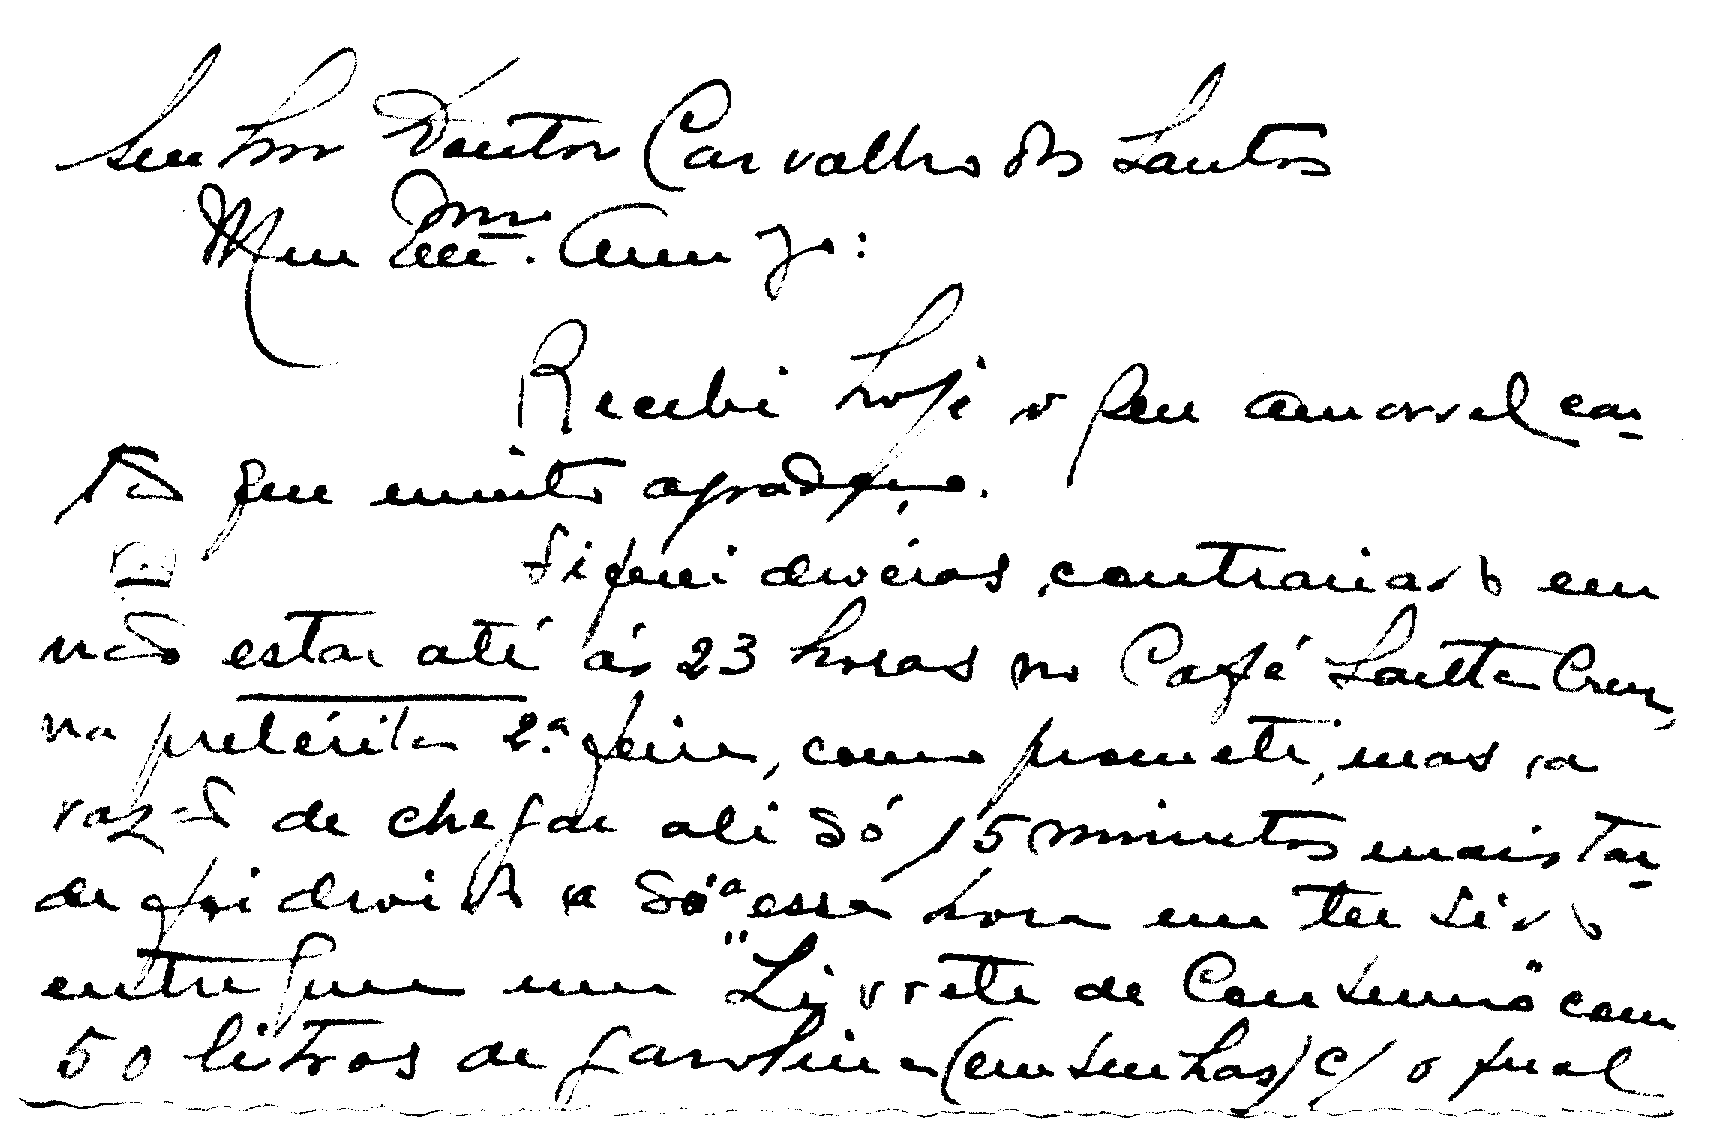 Senhor Doutor Carvalho dos Santos
Meu Exmº. Amigo:
Recebi hoje o seu amavel car-
tão que muito agradeço.
Fiquei deveras contrariado em
não estar até ás 23 horas no Café Santa Cruz,
na pretérita 2.ª feira, como prometi, mas a
razão de chegar ali só 15 minutos mais tar-
de foi devido a só a essa hora me ter sido
entregue um "Livrete de Consumo" com
50 litros de gasolina (em senhas) c/ o qual